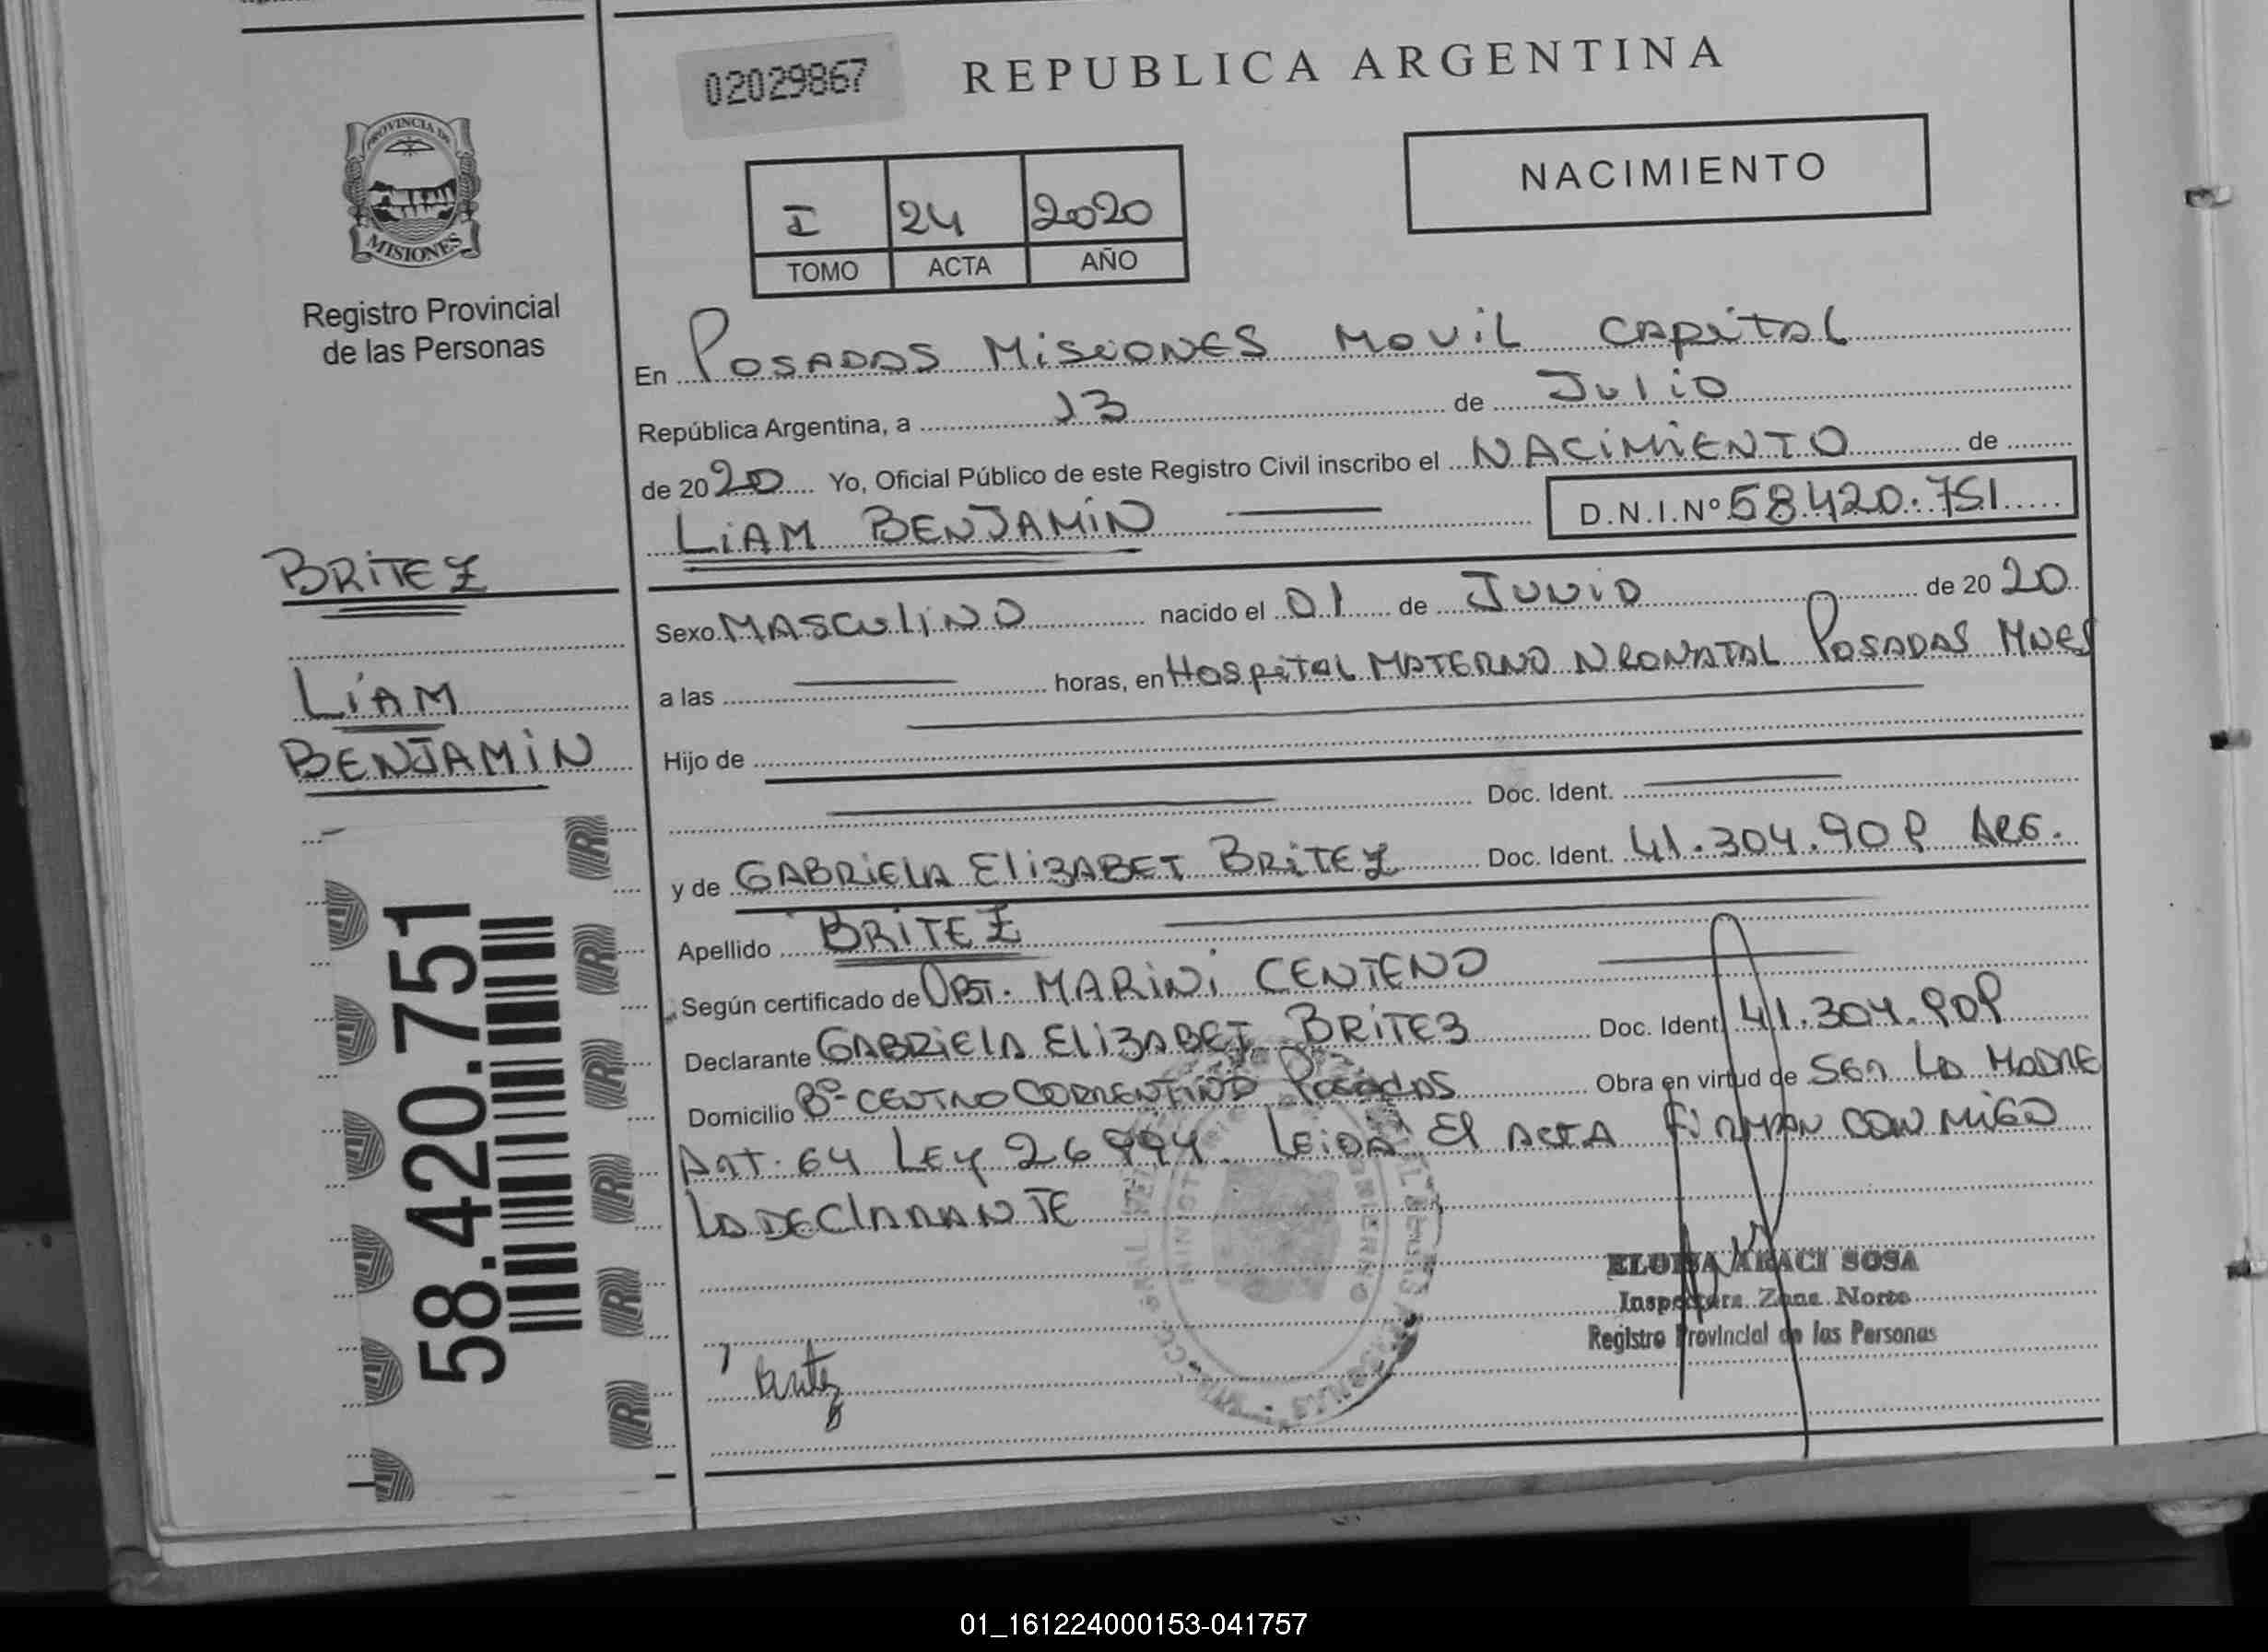 02029867
REPUBLICA ARGENTINA
NACIMIENTO
PROVINCIA DE
MISIONES
Registro Provincial
de las Personas
I 24 2020
TOMO ACTA AÑO
En POSADAS MISIONES MOVIL CAPITAL
República Argentina, a 13 de JULIO
de 2020 Yo, Oficial Público de este Registro Civil inscribo el NACIMIENTO de
LIAM BENJAMIN D.N.I.Nº 58.420.751
BRITEZ
LIAM
BENJAMIN
Sexo MASCULINO nacido el 01 de JUNIO de 2020
a las horas, en HOSPITAL MATERNO NEONATAL POSADAS MNES
Hijo de
Doc. Ident.
y de GABRIELA ELIZABET BRITEZ Doc. Ident. 41.304.909 ARG.
Apellido BRITEZ
Según certificado de OBT. MARINI CENTENO
Declarante GABRIELA ELIZABET BRITEZ Doc. Ident. 41.304.909
Domicilio Bº CENTRO CORRENTINO POSADAS Obra en virtud de SER LA MADRE
ART. 64 LEY 26994. LEIDA EL ACTA FIRMAN CONMIGO
LA DECLARANTE
58.420.751
Britez
ELOISA ARACI SOSA
Inspectora Zona Norte
Registro Provincial de las Personas
01_161224000153-041757